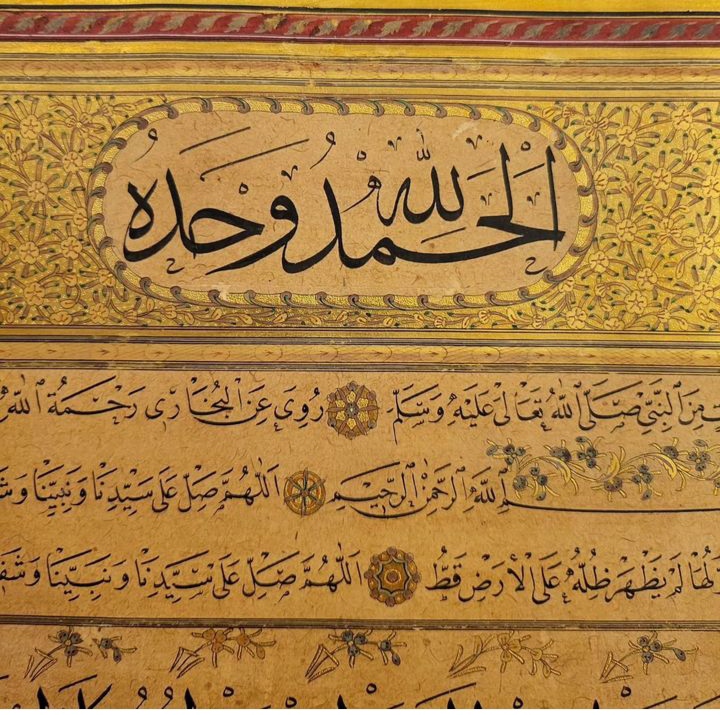 اَلْحَمْدُ لِلّٰهِ وَحْدَهُ
مِنَ النَّبِيِّ صَلَّى اللّٰهُ تَعَالٰى عَلَيْهِ وَسَلَّمَ رُوِيَ عَنِ الْبُخَارِي رَحْمَةُ اللّٰهِ
اللّٰهِ الرَّحْمٰنِ الرَّحِيمِ اَللّٰهُمَّ صَلِّ عَلٰى سَيِّدِنَا وَنَبِيِّنَا
لَمْ يَظْهَرْ ظِلُّهُ عَلَى الْأَرْضِ قَطُّ اَللّٰهُمَّ صَلِّ عَلٰى سَيِّدِنَا وَنَبِيِّنَا